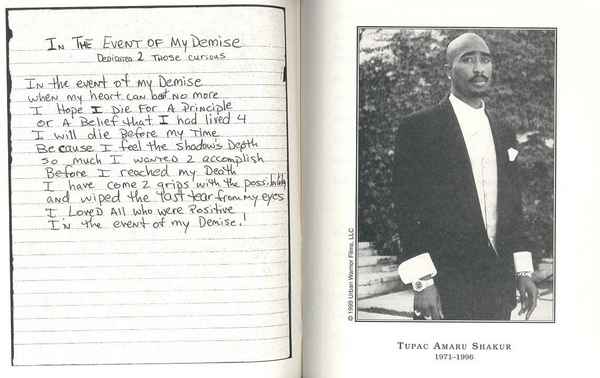 In The Event of My Demise
Dedicated 2 Those curious
In the event of my Demise
when my heart can beat no more
I Hope I Die For A Principle
or A Belief that I had lived 4
I will die Before my Time
Because I feel the shadow's Depth
so much I wanted 2 accomplish
Before I reached my Death
I have come 2 grips with the possibility
and wiped the last tear from my eyes
I Loved All who were Positive
In the event of my Demise!
© 1999 Urban Warrior Films, LLC
Tupac Amaru Shakur
1971–1996